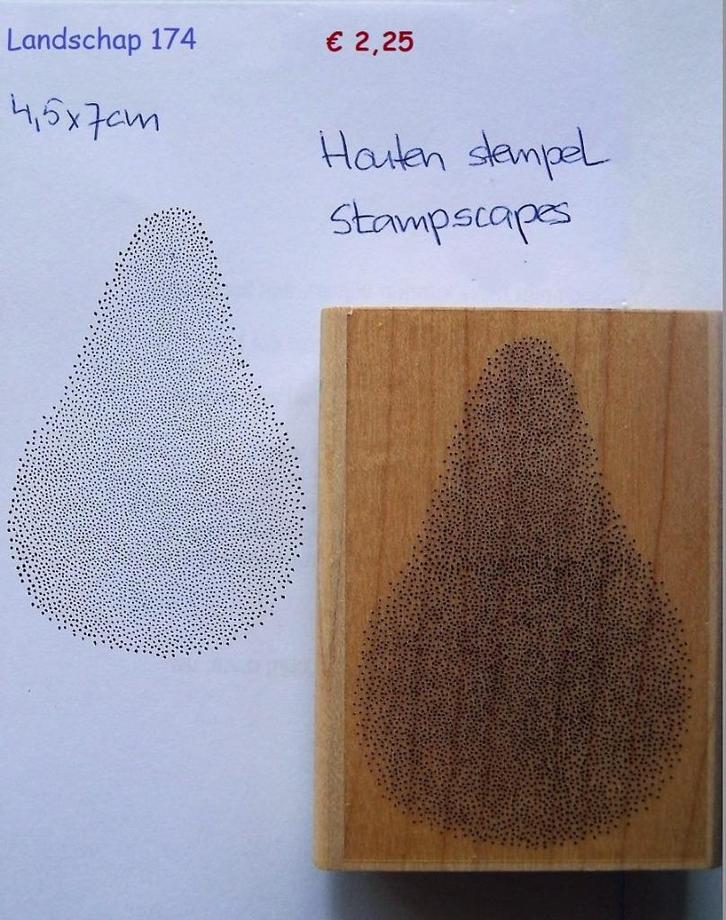 Landschap 174
€ 2,25
4,5x7cm
Houten stempel
Stampscapes